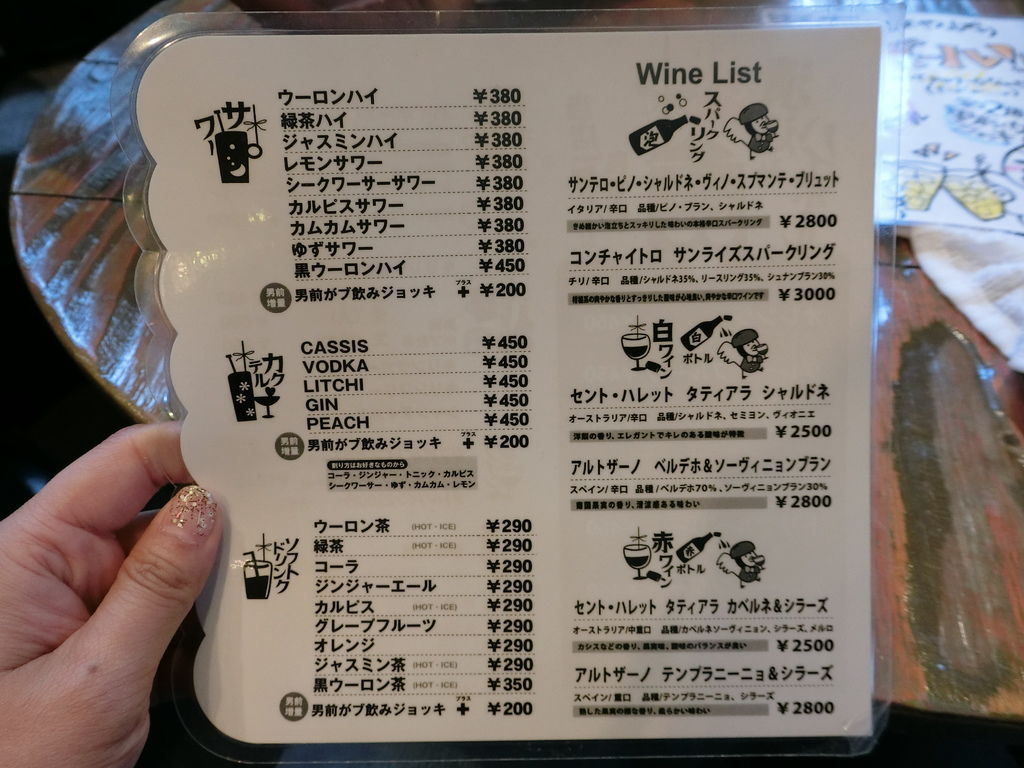 サワー
ウーロンハイ ¥380
緑茶ハイ ¥380
ジャスミンハイ ¥380
レモンサワー ¥380
シークワーサーサワー ¥380
カルピスサワー ¥380
カムカムサワー ¥380
ゆずサワー ¥380
黒ウーロンハイ ¥450
男前増量 男前がブ飲みジョッキ プラス + ¥200
カクテル
CASSIS ¥450
VODKA ¥450
LITCHI ¥450
GIN ¥450
PEACH ¥450
男前増量 男前がブ飲みジョッキ プラス + ¥200
割り方はお好きなものから
コーラ・ジンジャー・トニック・カルピス
シークワーサー・ゆず・カムカム・レモン
ソフトドリンク
ウーロン茶 (HOT・ICE) ¥290
緑茶 (HOT・ICE) ¥290
コーラ ¥290
ジンジャーエール ¥290
カルピス (HOT・ICE) ¥290
グレープフルーツ ¥290
オレンジ ¥290
ジャスミン茶 (HOT・ICE) ¥290
黒ウーロン茶 (HOT・ICE) ¥350
男前増量 男前がブ飲みジョッキ プラス + ¥200
Wine List
泡 スパークリング
サンテロ・ピノ・シャルドネ・ヴィノ・スプマンテ・ブリュット
イタリア/辛口 品種/ピノ・ブラン、シャルドネ
きめ細かい泡立ちとスッキリした味わいの本格辛口スパークリング ¥2800
コンチャイトロ サンライズスパークリング
チリ/辛口 品種/シャルドネ35%、リースリング35%、シュナンブラン30%
柑橘系の爽やかな香りとすっきりした酸味が心地良い、爽やかな辛口ワインです ¥3000
白ワイン 白 ボトル
セント・ハレット タティアラ シャルドネ
オーストラリア/辛口 品種/シャルドネ、セミヨン、ヴィオニエ
洋梨の香り、エレガントでキレのある酸味が特徴 ¥2500
アルトザーノ ベルデホ&ソーヴィニョンブラン
スペイン/辛口 品種/ベルデホ70%、ソーヴィニョンブラン30%
南国果実の香り、清涼感ある味わい ¥2800
赤ワイン 赤 ボトル
セント・ハレット タティアラ カベルネ&シラーズ
オーストラリア/中重口 品種/カベルネソーヴィニョン、シラーズ、メルロ
カシスなどの香り、果実味、酸味のバランスが良い ¥2500
アルトザーノ テンプラニーニョ&シラーズ
スペイン/重口 品種/テンプラニーニョ、シラーズ
熟した果実の様な香り、柔らかい味わい ¥2800